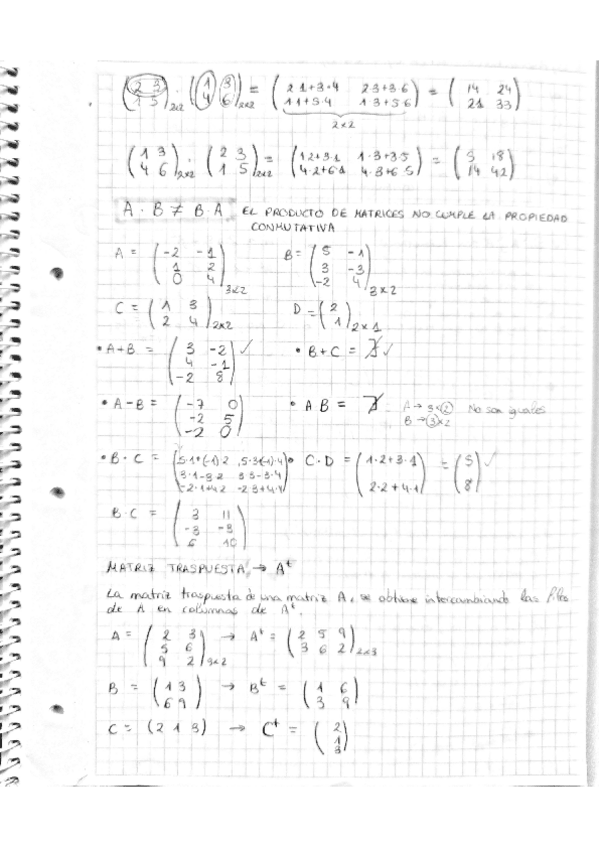 (2 3 / 1 5)2x2 · (1 3 / 4 6)2x2 = (2·1+3·4 2·3+3·6 / 1·1+5·4 1·3+5·6) = (14 24 / 21 33)
2x2
(1 3 / 4 6)2x2 · (2 3 / 1 5)2x2 = (1·2+3·1 1·3+3·5 / 4·2+6·1 4·3+6·5) = (5 18 / 14 42)
A · B ≠ B·A. EL PRODUCTO DE MATRICES NO CUMPLE LA PROPIEDAD
CONMUTATIVA
A = (-2 -1 / 1 2 / 0 4)3x2 B = (5 -1 / 3 -3 / -2 4)3x2
C = (1 3 / 2 4)2x2 D = (2 / 1)2x1
• A+B = (3 -2 / 4 -1 / -2 8) ✓ • B+C = ∄ ✓
• A-B = (-7 0 / -2 5 / -2 0) • A·B = ∄ A → 3x2 No son iguales
B → 3x2
• B·C = (5·1+(-1)·2 5·3+(-1)·4 / 3·1-3·2 3·3-3·4 / -2·1+4·2 -2·3+4·4) • C·D = (1·2+3·1 / 2·2+4·1) = (5 / 8) ✓
B·C = (3 11 / -3 -3 / 6 10)
MATRIZ TRASPUESTA → Aᵗ
La matriz traspuesta de una matriz A, se obtiene intercambiando las filas
de A en columnas de Aᵗ.
A = (2 3 / 5 6 / 9 2)3x2 → Aᵗ = (2 5 9 / 3 6 2)2x3
B = (1 3 / 6 9) → Bᵗ = (1 6 / 3 9)
C = (2 1 3) → Cᵗ = (2 / 1 / 3)